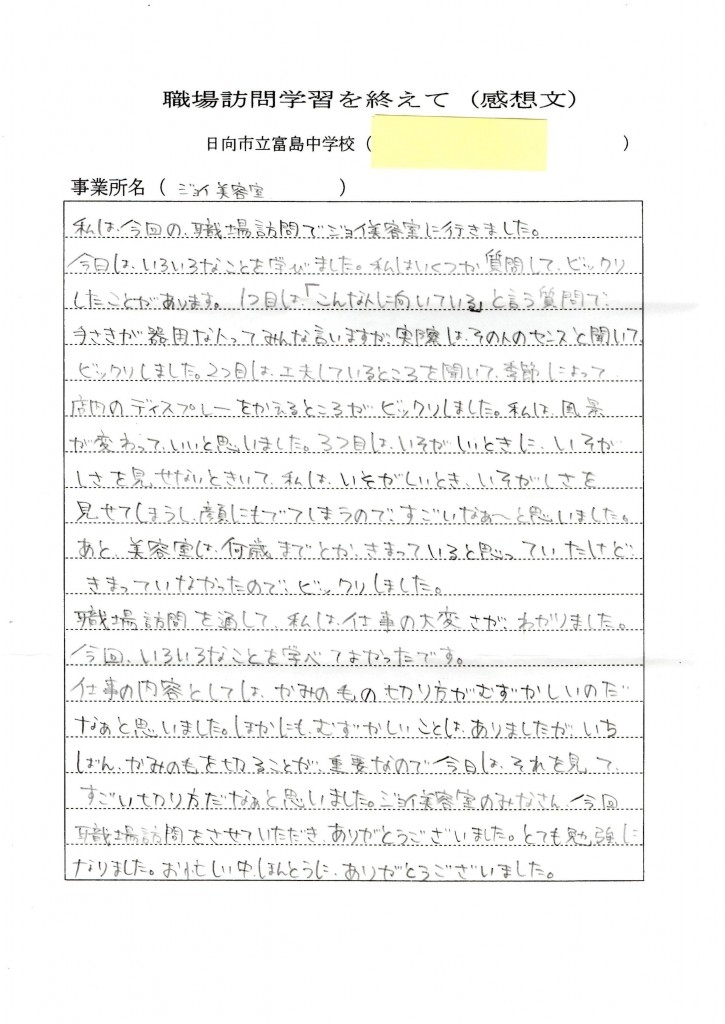 職場訪問学習を終えて（感想文）
日向市立富島中学校（　　　　　）
事業所名（ジョイ美容室　　　）
私は、今回の、職場訪問でジョイ美容室に行きました。
今日は、いろいろなことを学びました。私はいくつか質問して、ビックリ
したことがあります。1つ目は、「こんな人に向いている」と言う質問で、
手さきが器用な人ってみんな言いますが、実際は、その人のセンスと聞いて、
ビックリしました。2つ目は、工夫しているところを聞いて、季節によって
店内のディスプレーをかえるところが、ビックリしました。私は、風景
が変わって、いいと思いました。3つ目は、いそがしいときに、いそが
しさを見せないときいて、私は、いそがしいとき、いそがしさを
見せてしまうし、顔にもでてしまうので、すごいなぁ〜と思いました。
あと、美容室は、何歳までとか、きまっていると思っていたけど、
きまっていなかったので、ビックリしました。
職場訪問を通して、私は、仕事の大変さが、わかりました。
今回、いろいろなことを学べてよかったです。
仕事の内容としては、かみのもの切り方がむずかしいのだ
なぁと思いました。ほかにも、むずかしいことは、ありましたが、いち
ばん、かみのもを切ることが、重要なので今日は、それを見て、
すごい切り方だなぁと思いました。ジョイ美容室のみなさん、今回
職場訪問をさせていただき、ありがとうございました。とても勉強に
なりました。お忙しい中、ほんとうに、ありがとうございました。